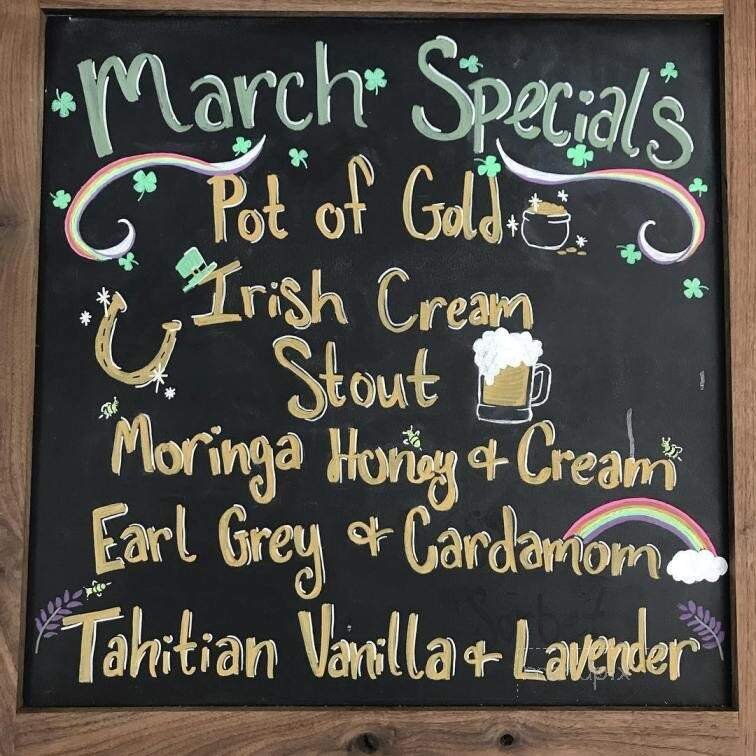 March Specials
Pot of Gold
Irish Cream
Stout
Moringa Honey & Cream
Earl Grey & Cardamom
Tahitian Vanilla & Lavender